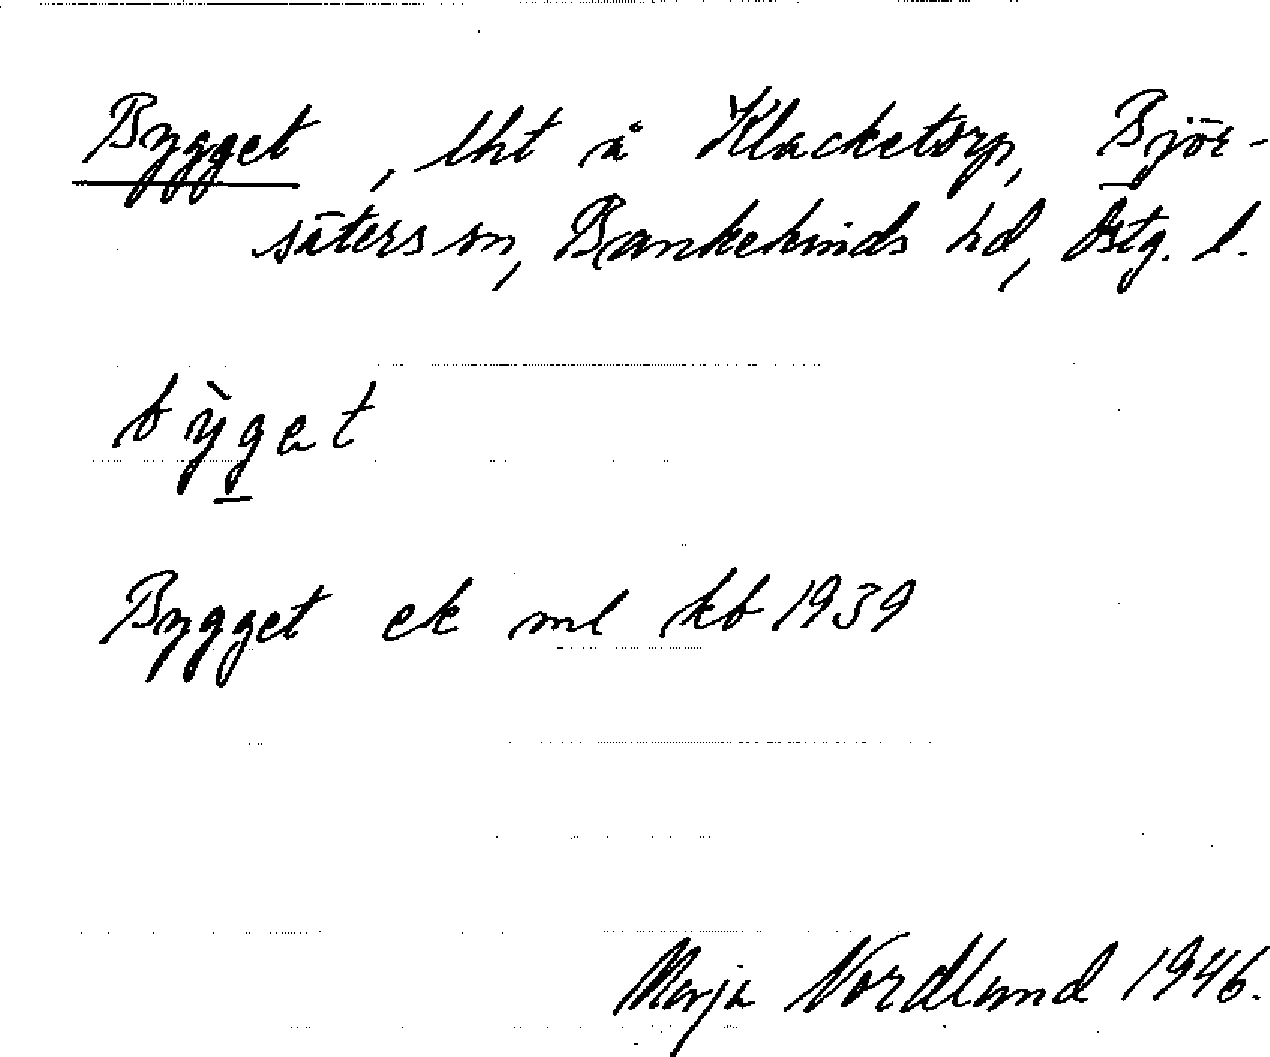 Bygget, lht å Klacketorp, Björ-
säters sn, Bankekinds hd, Östg. l.
bỳget
Bygget ek ml kb 1939
Marja Nordlund 1946.